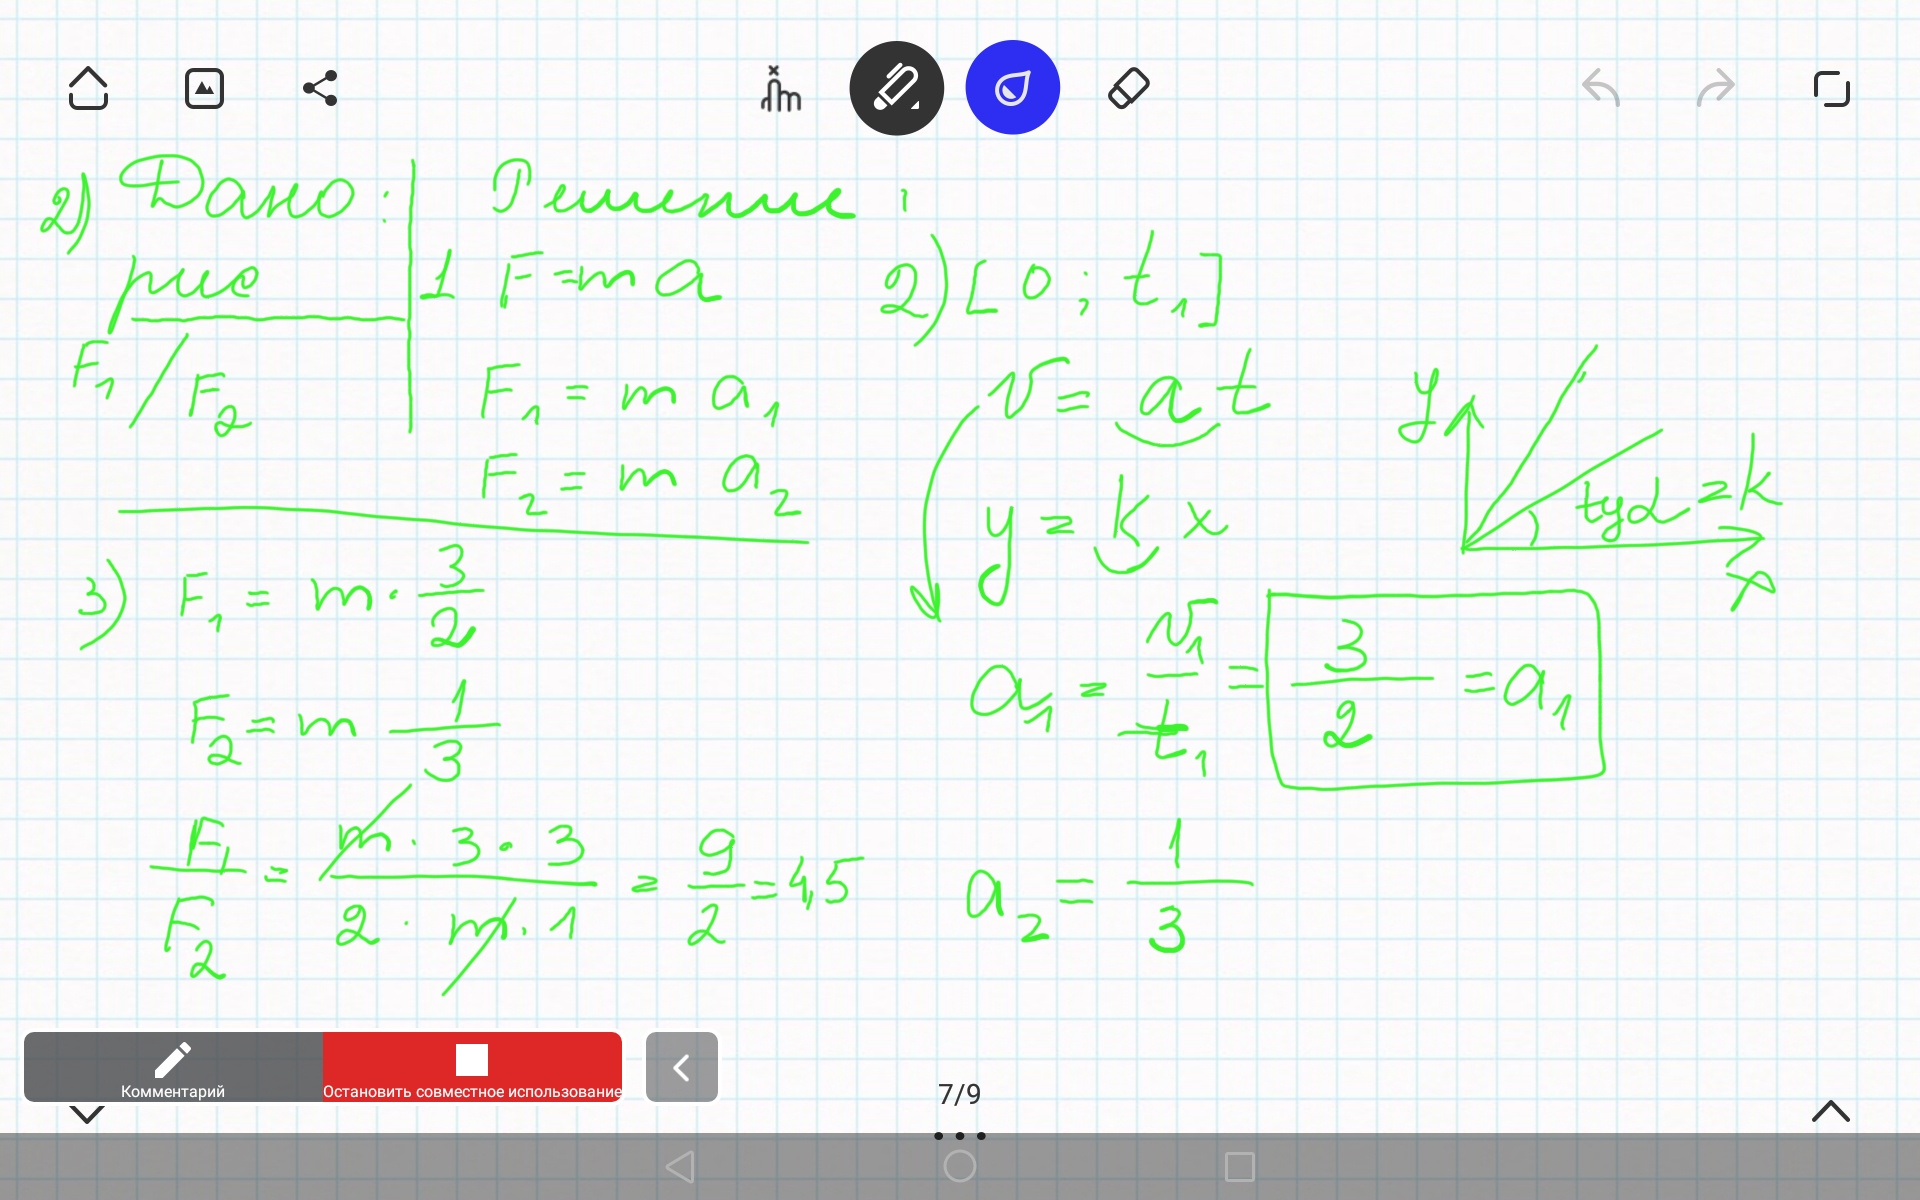 2) Дано:
рис
F₁ / F₂
Решение:
1 F = ma
F₁ = m a₁
F₂ = m a₂
2) [0; t₁]
v = a t
y = k x
y
tg α = k
x
a₁ = v₁/t₁ = 3/2 = a₁
a₂ = 1/3
3) F₁ = m · 3/2
F₂ = m 1/3
F₁/F₂ = m · 3 · 3 / 2 · m · 1 = 9/2 = 4,5
Комментарий
Остановить совместное использование
7/9